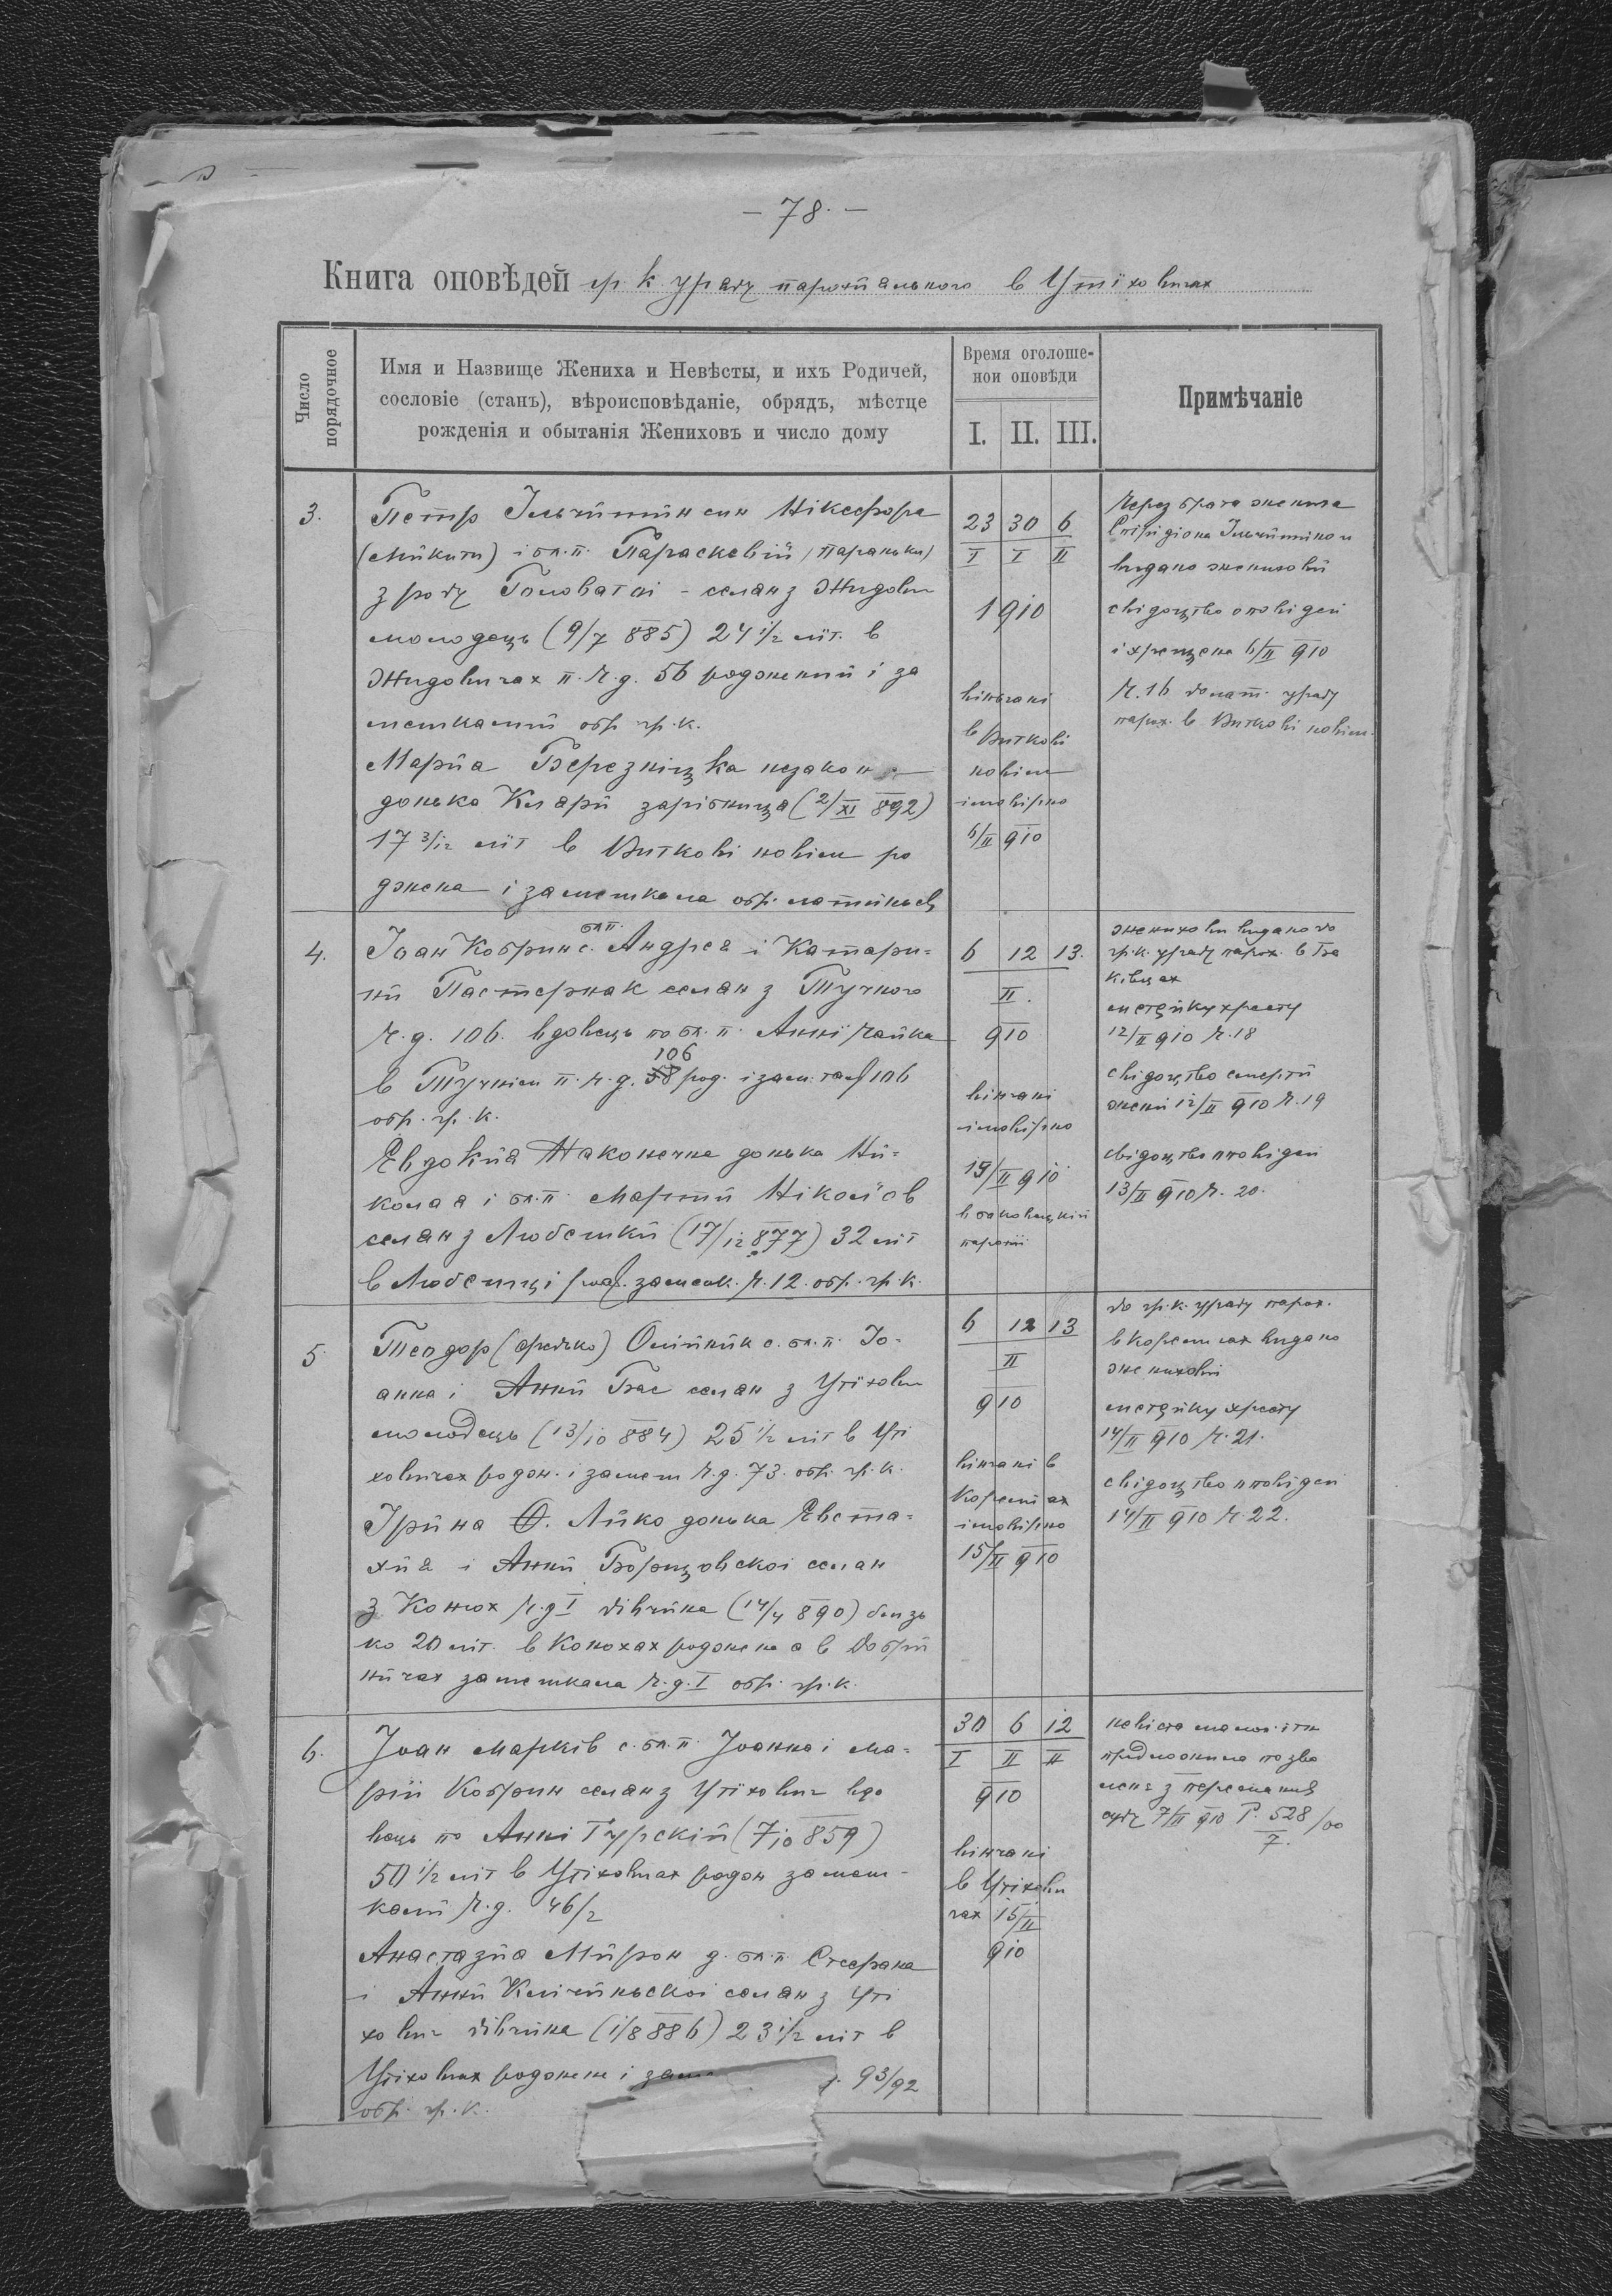 — 78. —
Книга оповѣдей гр к уряду парохіального в Утїховичах
Число порядочное
Имя и Назвище Жениха и Невѣсты, и ихъ Родичей,
сословіе (станъ), вѣроисповѣданіе, обрядъ, мѣстце
рожденія и обытанія Жениховъ и число дому
Время оголоше-
нои оповѣди
I. II. III.
Примѣчаніе
3.
Петр Ільчишин син Нікефора
(Микити) і бл. п. Параскевії (Параньки)
з роду Головатої - селян з Жидович
молодець (9/7 885) 24 1/2 літ. в
Жидовичах п. ч. д. 56 роджений і за
мешкалий обр. гр. к.
Марія Березніцка незакон
донька Клари зарібниця (2/XI 892)
17 3/12 літ в Виткові новім ро
джена і замешкала обр. латиньск
23 30 6
I I II
1910
вінчані
в Виткові
новім
імовірно
6/II 910
Через брата жениха
Спірідіона Ільчишина
видано женихови
свідоцтво оповідей
і хрещеня 6/II 910
Ч. 16 до лат. уряду
парох. в Виткові новім
4.
Іоан Кобрин с. бл п. Андрея і Катари-
ни Пастернак селян з Тучного
ч. д. 106. вдовець по бл. п. Анні Чайка
в Тучнім п. ч. д. 58 106 род. і зам. там 106
обр. гр. к.
Евдокия Наконечна донька Ни-
колая і бл. п. Марти Ніколїов
селян з Любешки (17/12 877) 32 літ
в Любешці замешк. ч. 12. обр. гр. к.
6 12 13.
II.
910
вінчані
імовірно
19/II 910
в баковецкій
парохії
женихови видано до
гр. к. уряду парох. в Ба
ківцях
метрику хресту
12/II 910 Ч. 18
свідоцтво смерти
жени 12/II 910 Ч. 19
свідоцтво оповідей
13/II 910 Ч. 20.
5.
Теодор (Федько) Олійник с. бл. п. Іо-
анна і Анни Бас селян з Утїхович
молодець (13/10 884) 25 1/2 літ в Уті
ховичах родж. і замеш ч. д. 73. обр. гр. к.
Ірина Ф. Лико донька Евста-
хия і Анни Борщовскої селян
з Конюх ч. д I дівчина (14/4 890) близь
ко 20 літ. в Конюхах роджена а в Добри
ничах замешкала ч. д. I обр. гр. к.
6 12 13
II
910
вінчані в
Корели ах
імовірно
15/II 910
до гр. к. уряду парох.
в Корели чах видано
женихови
метрику хресту
14/II 910 Ч. 21.
свідоцтво оповідей
14/II 910 Ч. 22.
6.
Іоан Марків с. бл. п. Іоанна і Ма-
рії Кобрин селян з Утїхович вдо
вець по Анні Гурскій (7/10 859)
50 1/2 літ в Утїховичах родж замеш-
калий ч. д. 46/2
Анастазия Мирон д. бл. п. Стефана
і Анни Клічиньскої селян з Уті
хович дівчина (1/8 886) 23 1/2 літ в
Утїховичах роджена і заме 93/92
обр. гр. к.
30 6 12
I II II
910
вінчані
в Утїхови
чах 15/II
910
невіста малолітн
предложила позво
лене з Перемишл
суду 7/II 910 P. 528/00
7.